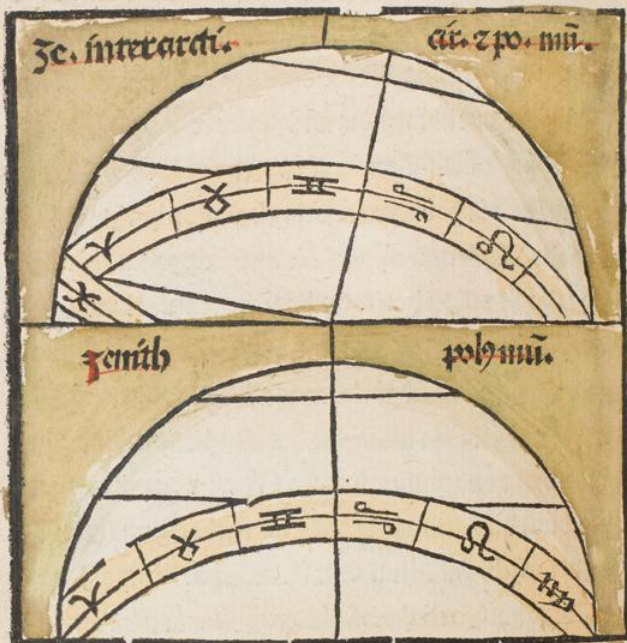 ze. interarcti.
cir. ⁊ po. mū.
♈ ♉ ♊ ♋ ♌
♓
zenith
polꝰ mū.
♈ ♉ ♊ ♋ ♌ ♍